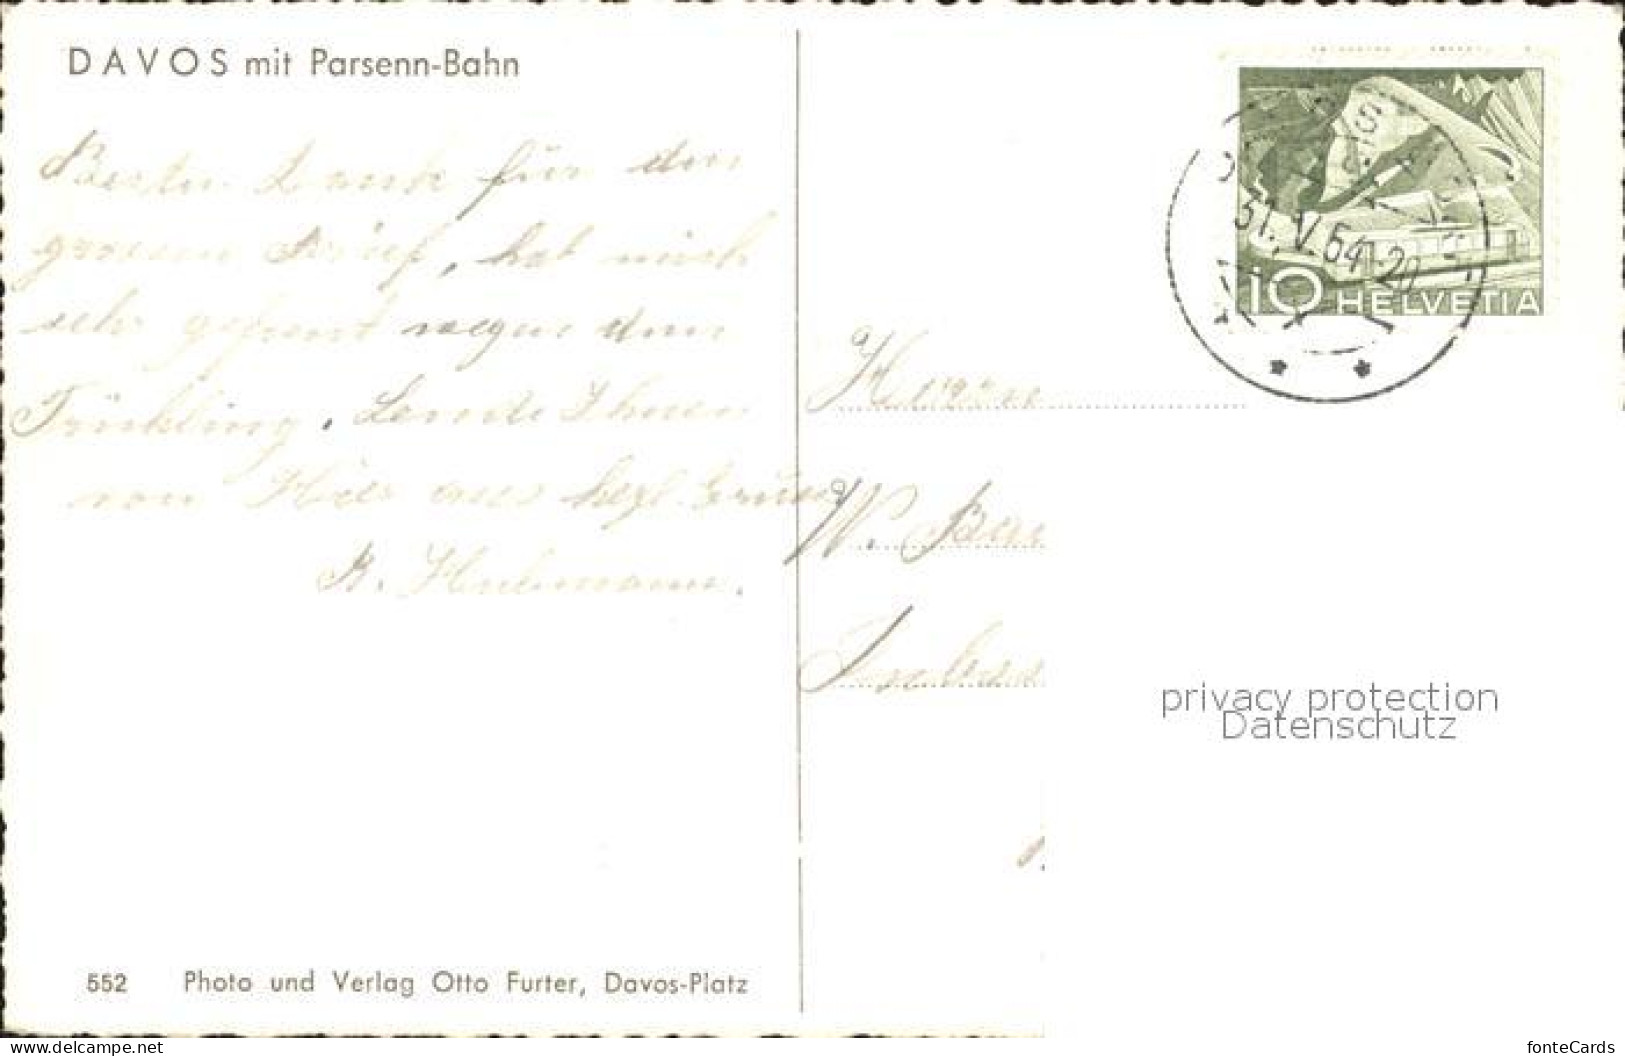 DAVOS mit Parsenn-Bahn
Besten Dank für den
grossen Brief, hat mich
sehr gefreut wegen dem
Frühling. Sende Ihnen
von Hier aus herzl. Gruss
B. Huhmann.
31.V.64-20
10 HELVETIA
Herrn
W. Bau
privacy protection
Datenschutz
552 Photo und Verlag Otto Furter, Davos-Platz
www.delcampe.net
fonteCards